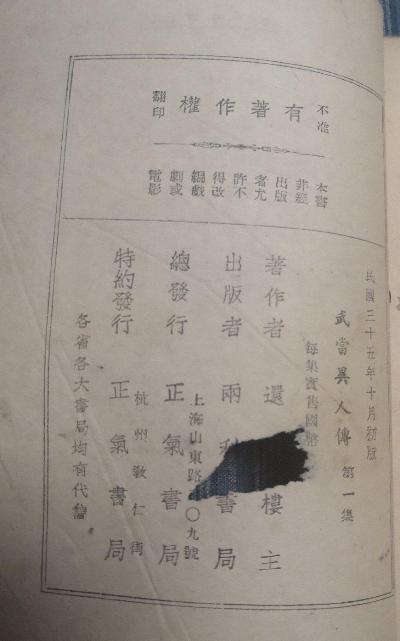 不准
有著作權
翻印
本書
非經
出版
者允
許不
得改
編戲
劇或
電影
民國三十五年十月初版
武當異人傳 第一集
每集實售國幣
著作者 還 樓主
出版者 兩利書局
上海山東路 〇九號
總發行 正氣書局
杭州敎仁街
特約發行 正氣書局
各省各大書局均有代